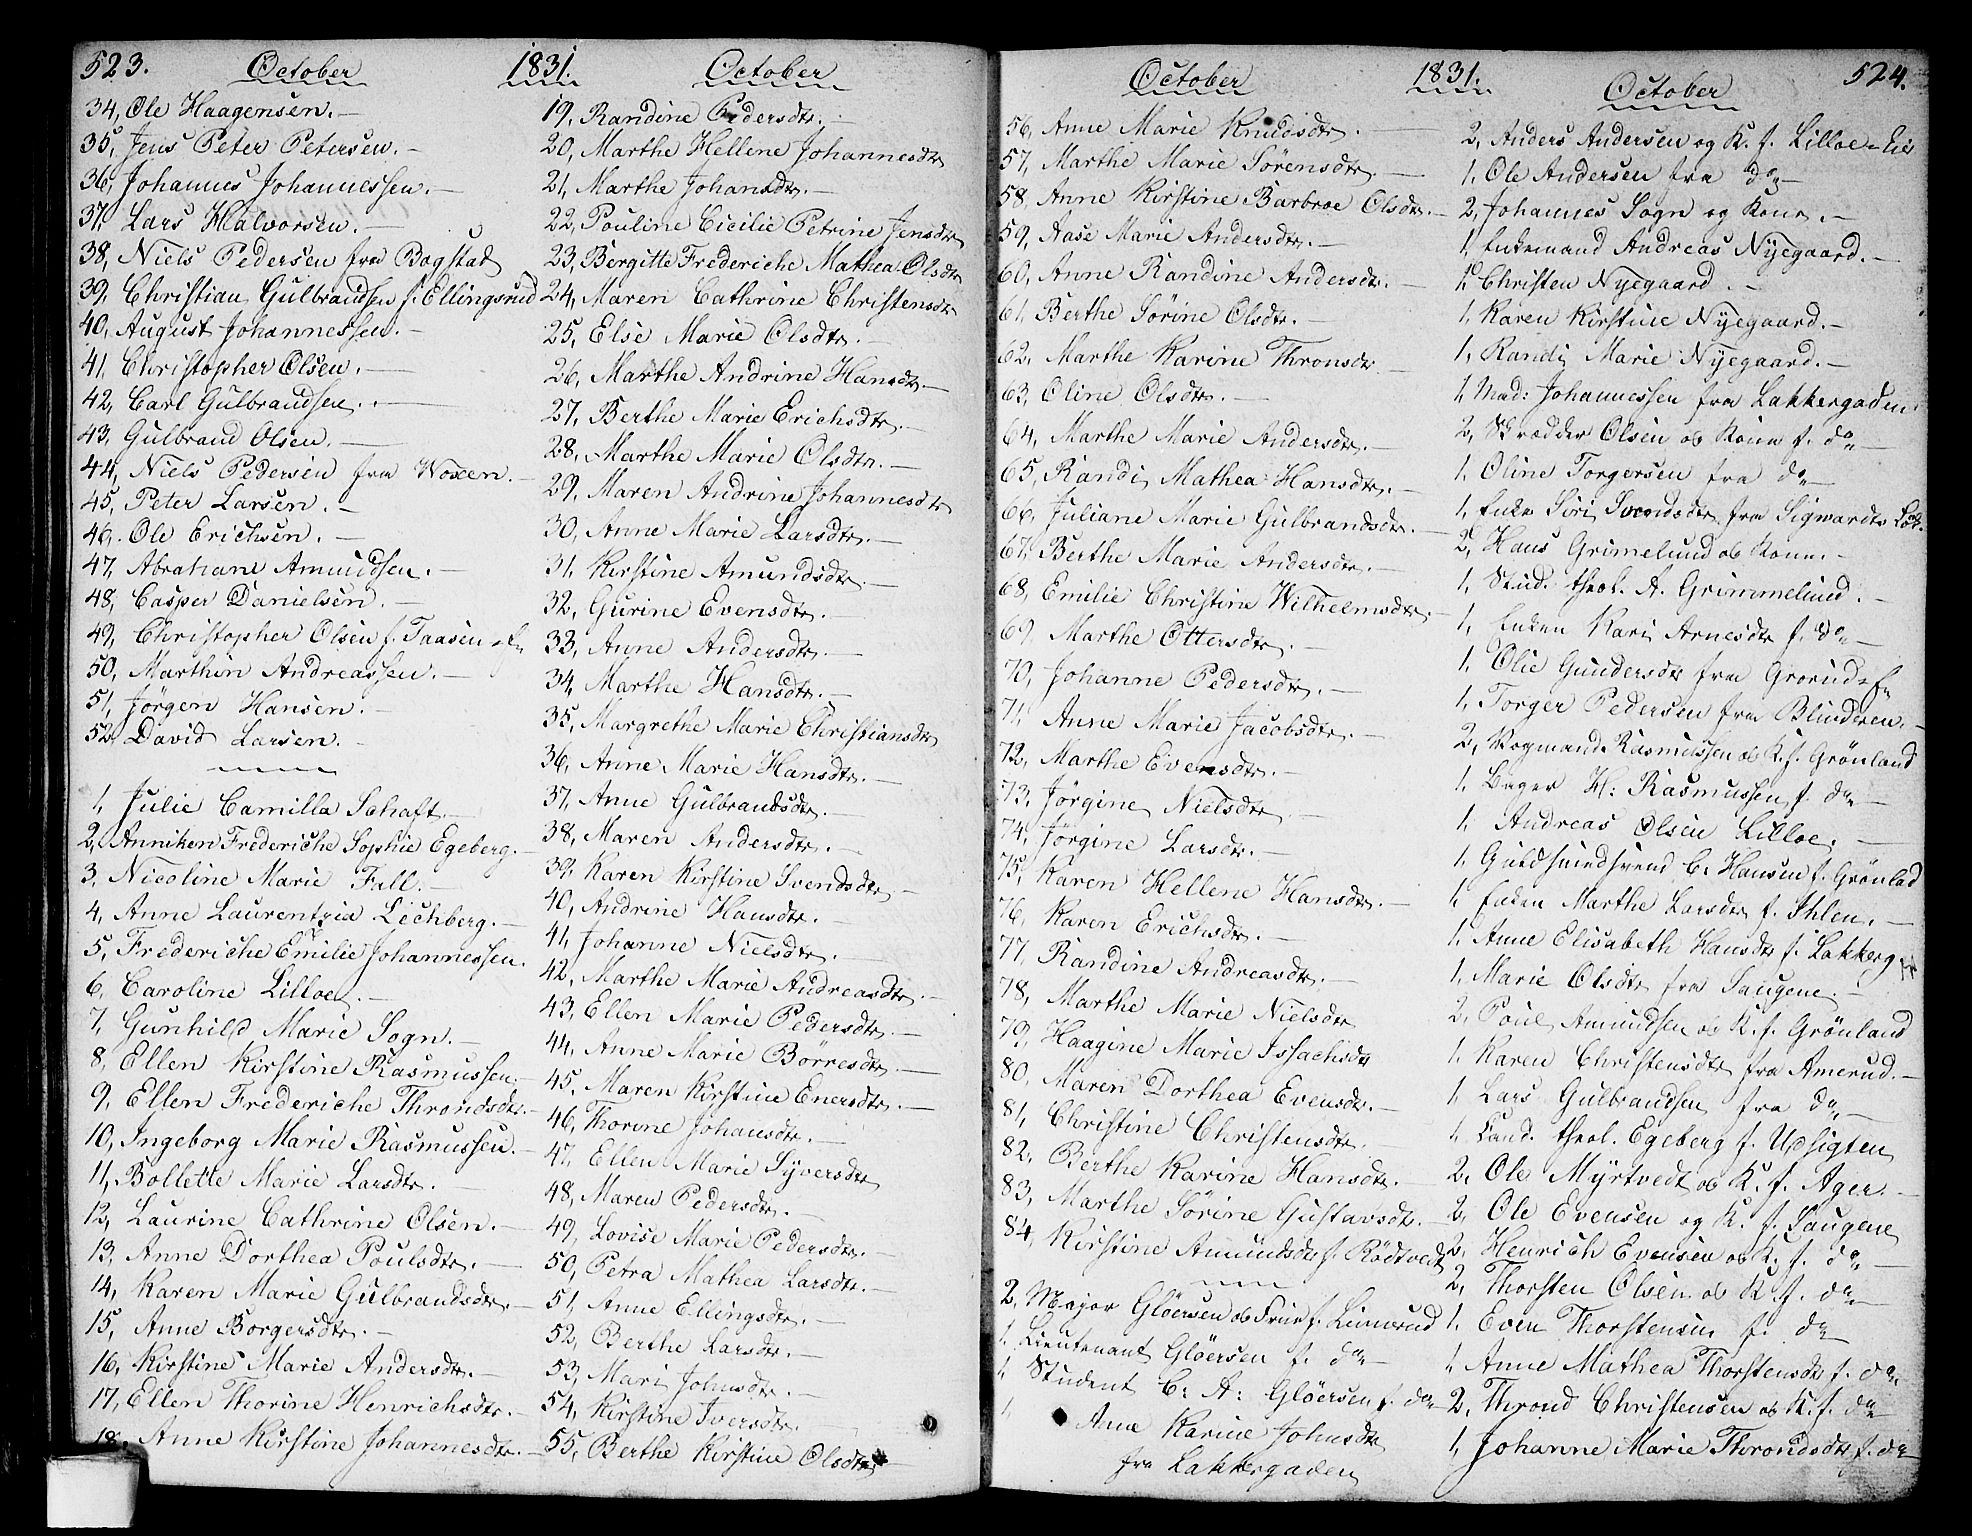 523. October 1831. October
34, Ole Haagensen. —
35, Jens Peter Petersen. —
36, Johannes Johannessen. —
37, Lars Halvorsen. —
38, Niels Pedersen fra Bogstad
39, Christian Gulbrandsen f. Ellingsrud
40, August Johannessen. —
41, Christopher Olsen. —
42, Carl Gulbrandsen. —
43, Gulbrand Olsen. —
44, Niels Pedersen fra Woxen. —
45, Peter Larsen. —
46. Ole Erichsen. —
47, Abraham Amundsen. —
48, Casper Danielsen. —
49, Christopher Olsen f. Taasen
50, Marthin Andreassen. —
51, Jörgen Hansen. —
52, David Larsen. —
1, Julie Camilla Schaft. —
2, Anniken Frederiche Sophie Egeberg. —
3, Nicoline Marie Fall. —
4, Anne Laurentzia Lechberg. —
5, Frederiche Emilie Johannessen.
6, Caroline Lilloe. —
7, Gunhild Marie Sogn. —
8, Ellen Kirstine Rasmussen. —
9, Ellen Frederiche Throndsdtr. —
10, Ingeborg Marie Rasmussen. —
11, Bollette Marie Larsdtr. —
12, Laurine Cathrine Olsen. —
13, Anne Dorthea Poulsdtr. —
14, Karen Marie Gulbrandsdtr. —
15, Anne Borgersdtr. —
16, Kirstine Marie Andersdtr. —
17, Ellen Thorine Henrichsdtr. —
18, Anne Kirstine Johannesdtr. —
19, Randine Pedersdtr. —
20, Marthe Hellene Johannesdtr
21, Marthe Johansdtr. —
22, Pouline Cicilie Petrine Jensdtr
23, Bergitte Frederiche Mathea Olsdtr
24, Maren Cathrine Christensdtr
25, Else Marie Olsdtr. —
26, Marthe Andrine Hansdtr. —
27, Berthe Marie Erichsdtr. —
28, Marthe Marie Olsdtr. —
29, Maren Andrine Johannesdtr
30, Anne Marie Larsdtr. —
31, Kirstine Amundsdtr. —
32, Gurine Evensdtr. —
33, Anne Andersdtr. —
34, Marthe Hansdtr. —
35, Margrethe Marie Christiansdtr
36, Anne Marie Hansdtr. —
37, Anne Gulbrandsdtr. —
38, Maren Andersdtr. —
39, Karen Kirstine Svendsdtr. —
40, Andrine Hansdtr.
41, Johanne Nielsdtr. —
42, Marthe Marie Andreasdtr. —
43, Ellen Marie Pedersdtr. —
44, Anne Marie Börresdtr. —
45, Maren Kirstine Enersdtr. —
46, Thorine Johansdtr. —
47, Ellen Marie Syversdtr
48, Maren Pedersdtr. —
49, Lovise Marie Pedersdtr. —
50, Petra Mathea Larsdtr. —
51, Anne Ellingsdtr. —
52, Berthe Larsdtr. —
53, Mari Johnsdtr. —
54, Kirstine Iversdtr. —
55, Berthe Kirstine Olsdtr. —
October 1831. October 524.
56, Anne Marie Knudsdtr. —
57, Marthe Marie Sörensdtr. —
58, Anne Kirstine Barbroe Olsdtr. —
59, Aase Marie Andersdtr. —
60, Anne Randine Andersdtr. —
61, Berthe Sörine Olsdtr. —
62, Marthe Karine Thronsdtr —
63, Oline Olsdtr. —
64, Marthe Marie Andersdtr. —
65, Randi Mathea Hansdtr. —
66, Juliane Marie Gulbrandsdtr. —
67, Berthe Marie Andersdtr. —
68, Emilie Christine Wilhelmsdtr. —
69, Marthe Ottersdtr. —
70, Johanne Pedersdtr. —
71, Anne Marie Jacobsdtr. —
72, Marthe Evensdtr. —
73, Jörgine Nielsdtr. —
74, Jörgine Larsdtr. —
75, Karen Hellene Hansdtr. —
76, Karen Erichsdtr. —
77, Randine Andreasdtr. —
78, Marthe Marie Nielsdtr
79, Haagine Marie Issachsdtr
80, Maren Dorthea Evensdtr. —
81, Christine Christensdtr. —
82, Berthe Karine Hansdtr. —
83, Marthe Sörine Gustavsdtr. —
84, Kirstine Amundsdtr f. Rödtvedt
2, Major Glöersen og Frue f. Linnerud
1, Lieutenant Glöersen f. do —
1, Student C: A: Glöersen f. do
1, Anne Karine Johnsdtr
fra Lakkergaden
2, Anders Andersen og K. f. Lilloe-Eie
1, Ole Andersen fra do —
2, Johannes Sogn og Kone. —
1, Enkemand Andreas Nyegaard. —
1, Christen Nyegaard. —
1, Karen Kirstine Nyegaard. —
1, Randi Marie Nyegaard. —
1, Mad: Johannessen fra Lakkergaden
2, Skrædder Olsen og Kone f. do —
1, Oline Torgersen fra do —
1, Enke Siri Svendsdtr fra Sigwardts
2, Hans Grimelund og Kone. —
1, Stud. theol. A. Grimmelund. —
1, Enken Kari Arnesdtr f. do —
1, Olie Gundersdtr fra Grorud
1, Torger Pedersen fra Blinderen. —
2, Vognmand Rasmussen og K. f. Grönland
1, Bager H: Rasmussen f. do —
1, Andreas Olsen Lilloe. —
1, Guldsmedsvend C. Hansen f. Grönlad
1, Enken Marthe Larsdtr f. Ihlen. —
1, Anne Elisabeth Hansdtr f. Lakkerg
1, Marie Olsdtr fra Laugene. —
2, Poul Amundsen og K. f. Grönland
1, Karen Christensdtr fra Amerud. —
1, Lars Gulbrandsen fra do —
1, Cand. theol. Egeberg f. Udsigten
2, Ole Myrtvedt og K. f. Ager. —
2, Ole Evensen og K. f. Laugene
2, Henrich Evensen og K. f. do —
2, Thorsten Olsen og K f. do —
1, Even Thorstensen f. do
1, Anne Mathea Thorstensdtr f. do
2, Thrond Christensen og K. f. do
1, Johanne Marie Throndsdtr f. do